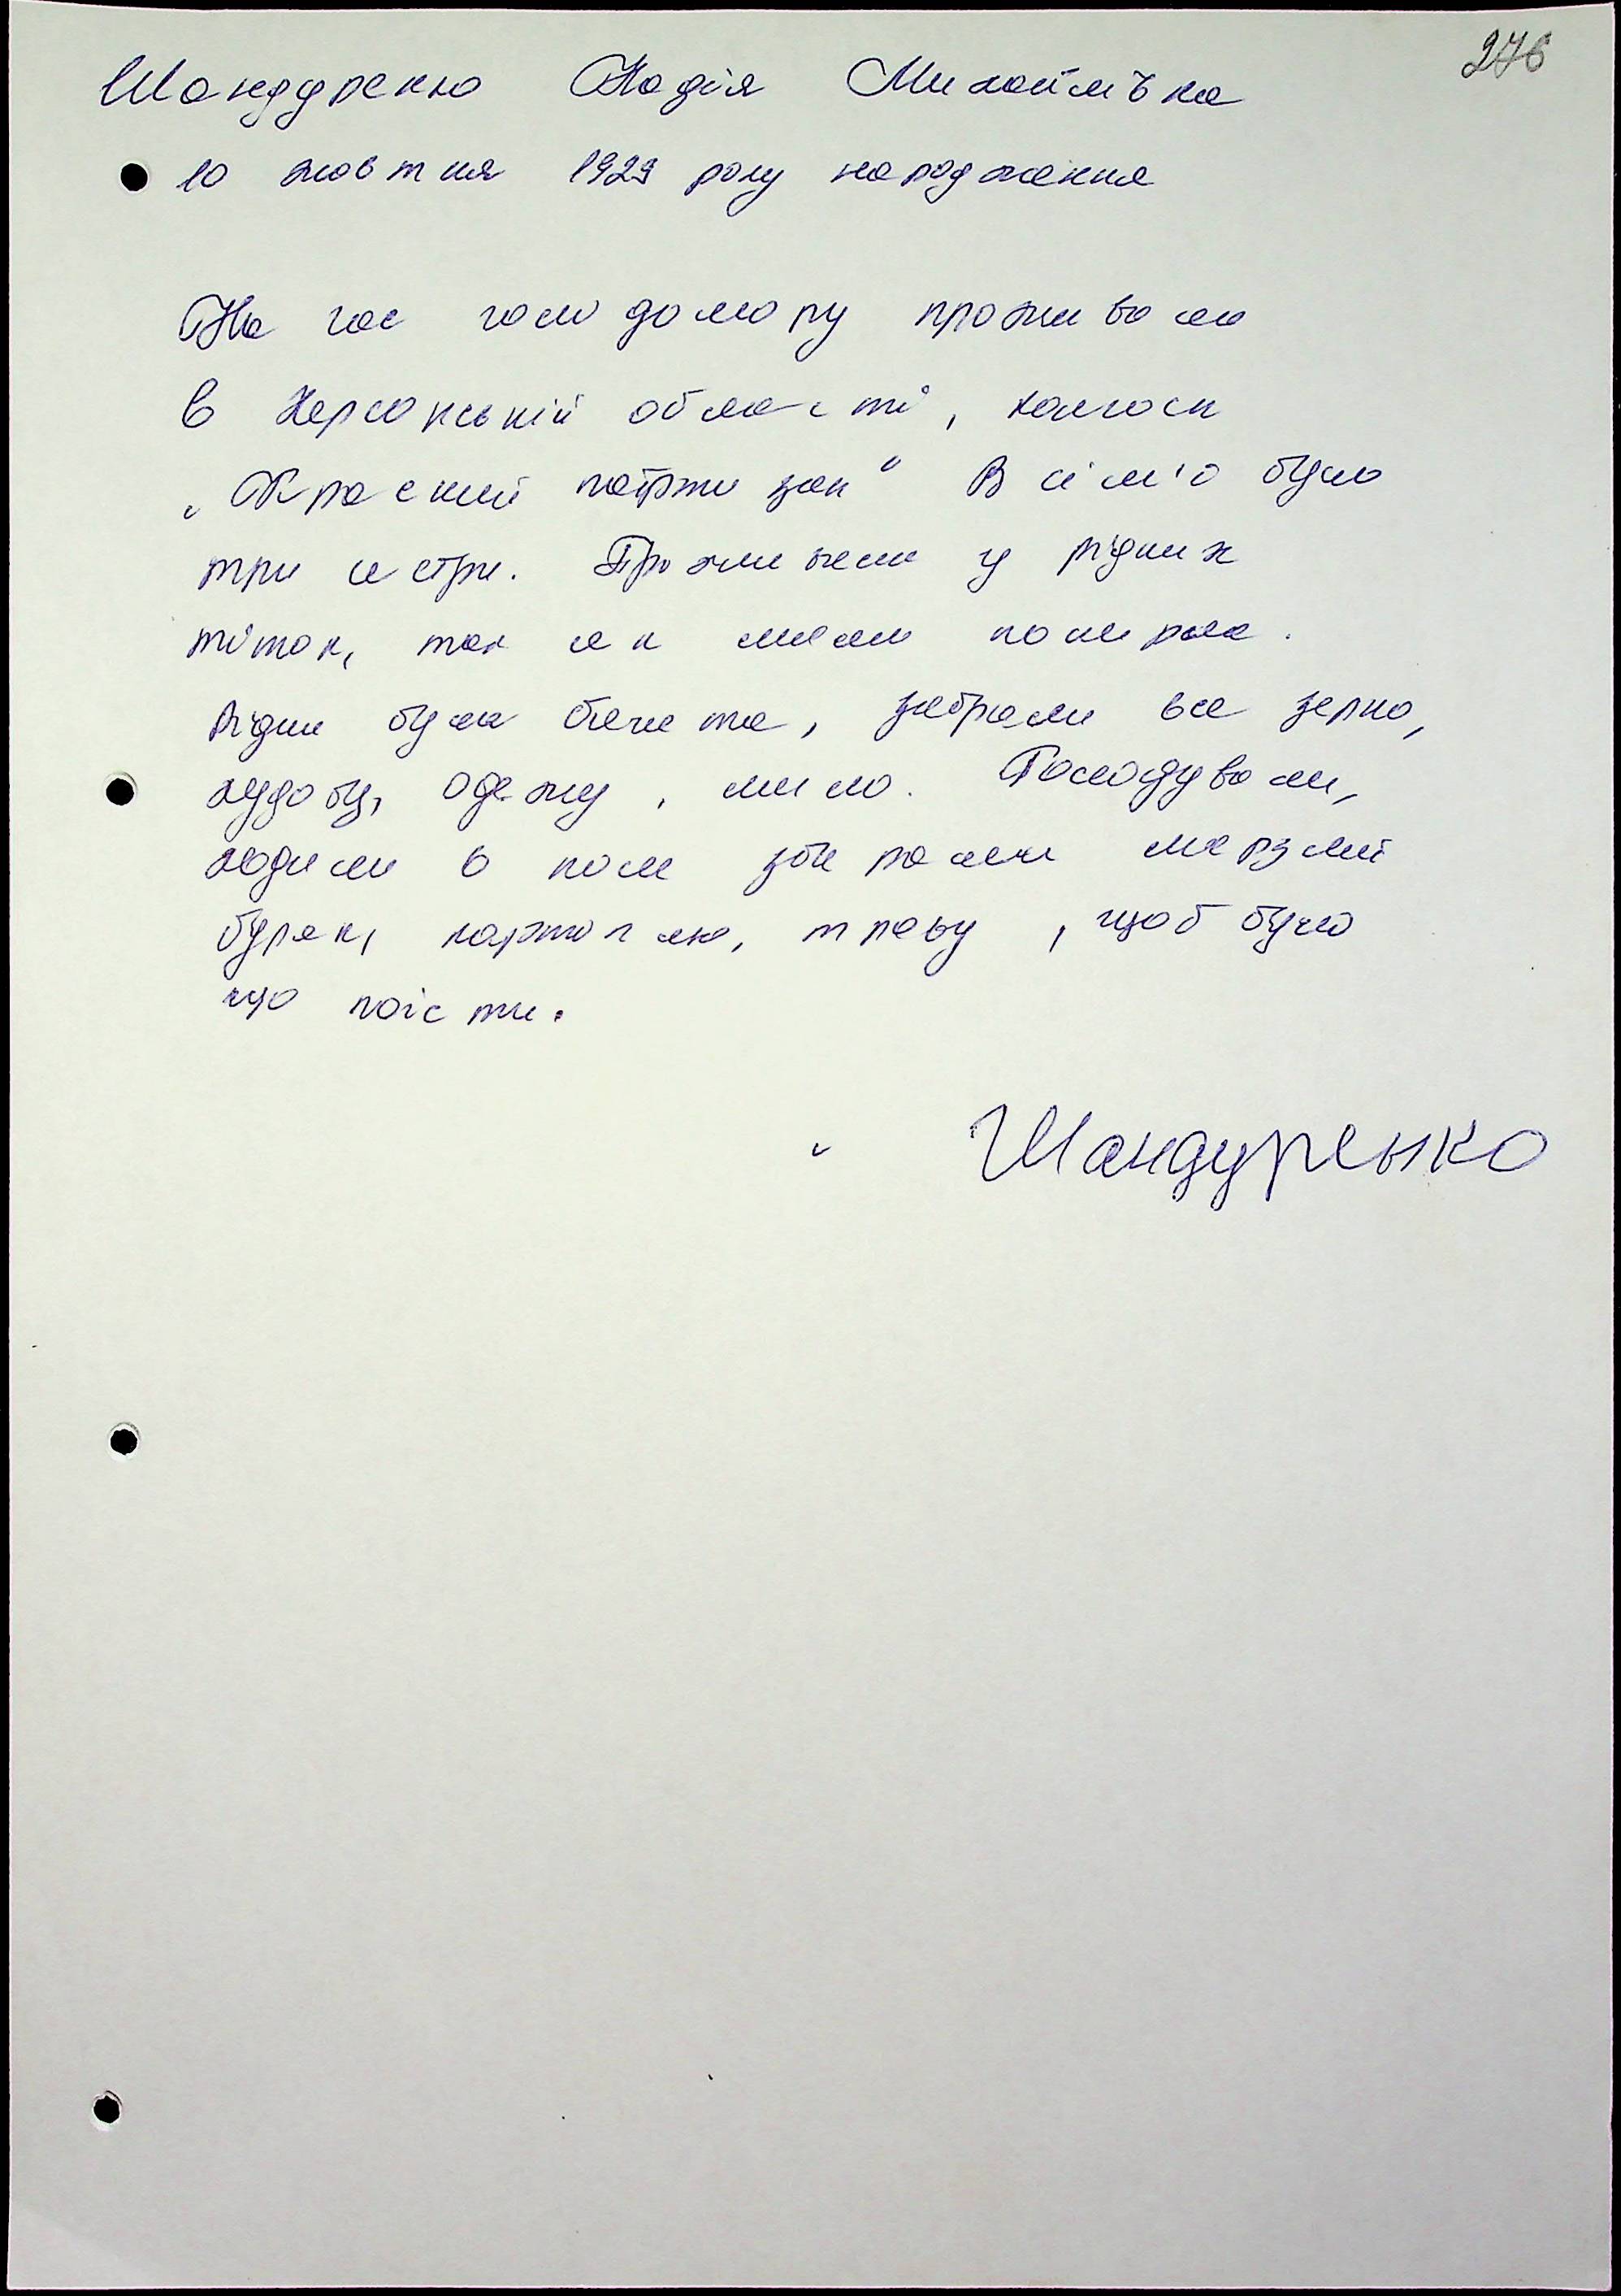 276
Шандуренко Надія Михайлівна
10 жовтня 1929 року народження
На час голодомору проживала
в Херсонській області, колгосп
„Красний партизан" В сім'ї було
три сестри. Проживали у рідних
тіток, так як мама померла.
Рідня була багата, забрали все зерно,
худобу, одежу, мило. Голодували,
ходили в поле збирали мерзлий
буряк, картоплю, траву, щоб було
що поїсти.
Шандуренко